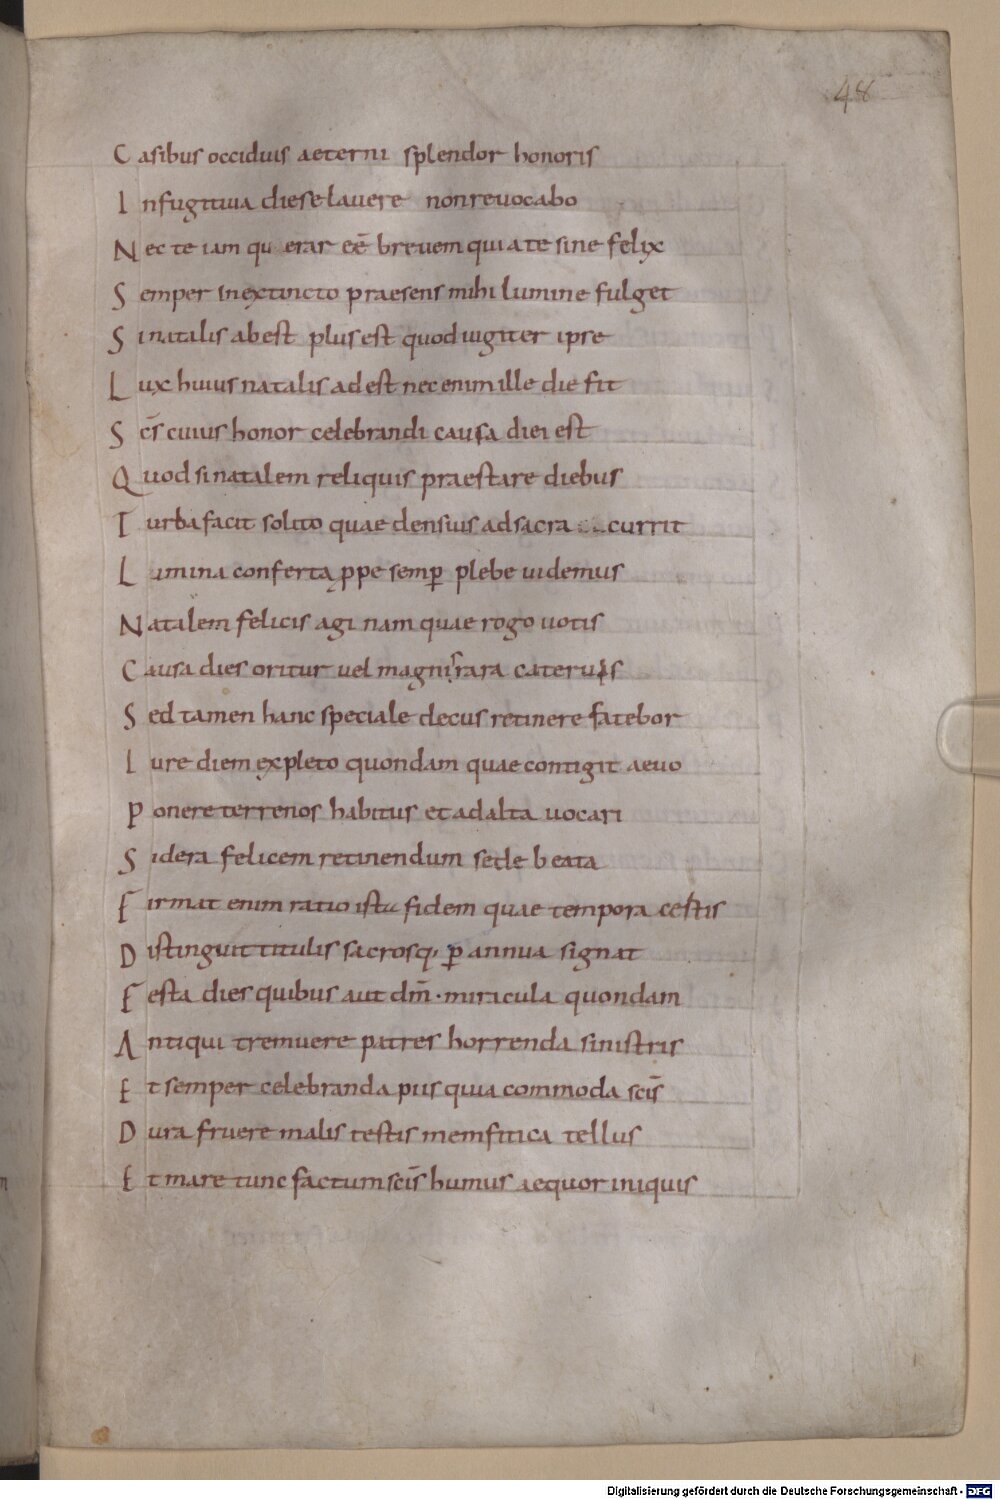 48
Casibus occiduis aeterni splendor honoris
In fugitiua die se lauere non reuocabo
Nec te iam querar eē breuem quia te sine felix
Semper inextincto praesens mihi lumine fulget
Si natalis abest plus est quod iugiter ipse
Lux huius natalis adest nec enim ille die fit
Sc̄s cuius honor celebrandi causa diei est
Quod si natalem reliquis praestare diebus
Turba facit solito quae densius ad sacra currit
Limina conferta ꝓpe semꝑ plebe uidemus
Natalem felicis agi nam quae rogo uotis
Causa dies oritur uel magnis rara cateruis
Sed tamen hanc speciale decus retinere fatebor
Iure diem expleto quondam quae contigit aeuo
Ponere terrenos habitus et ad alta uocari
Sidera felicem retinendum sede beata
Firmat enim ratio ista fidem quae tempora cestis
Distinguit titulis sacrosq; ꝑ annua signat
Festa dies quibus aut dm̄ · miracula quondam
Antiqui tremuere patres horrenda sinistris
Et semper celebranda piis quia commoda scīs
Dura fruere malis testis memfitica tellus
Et mare tunc factum scīs humus aequor iniquis
Digitalisierung gefördert durch die Deutsche Forschungsgemeinschaft - DFG